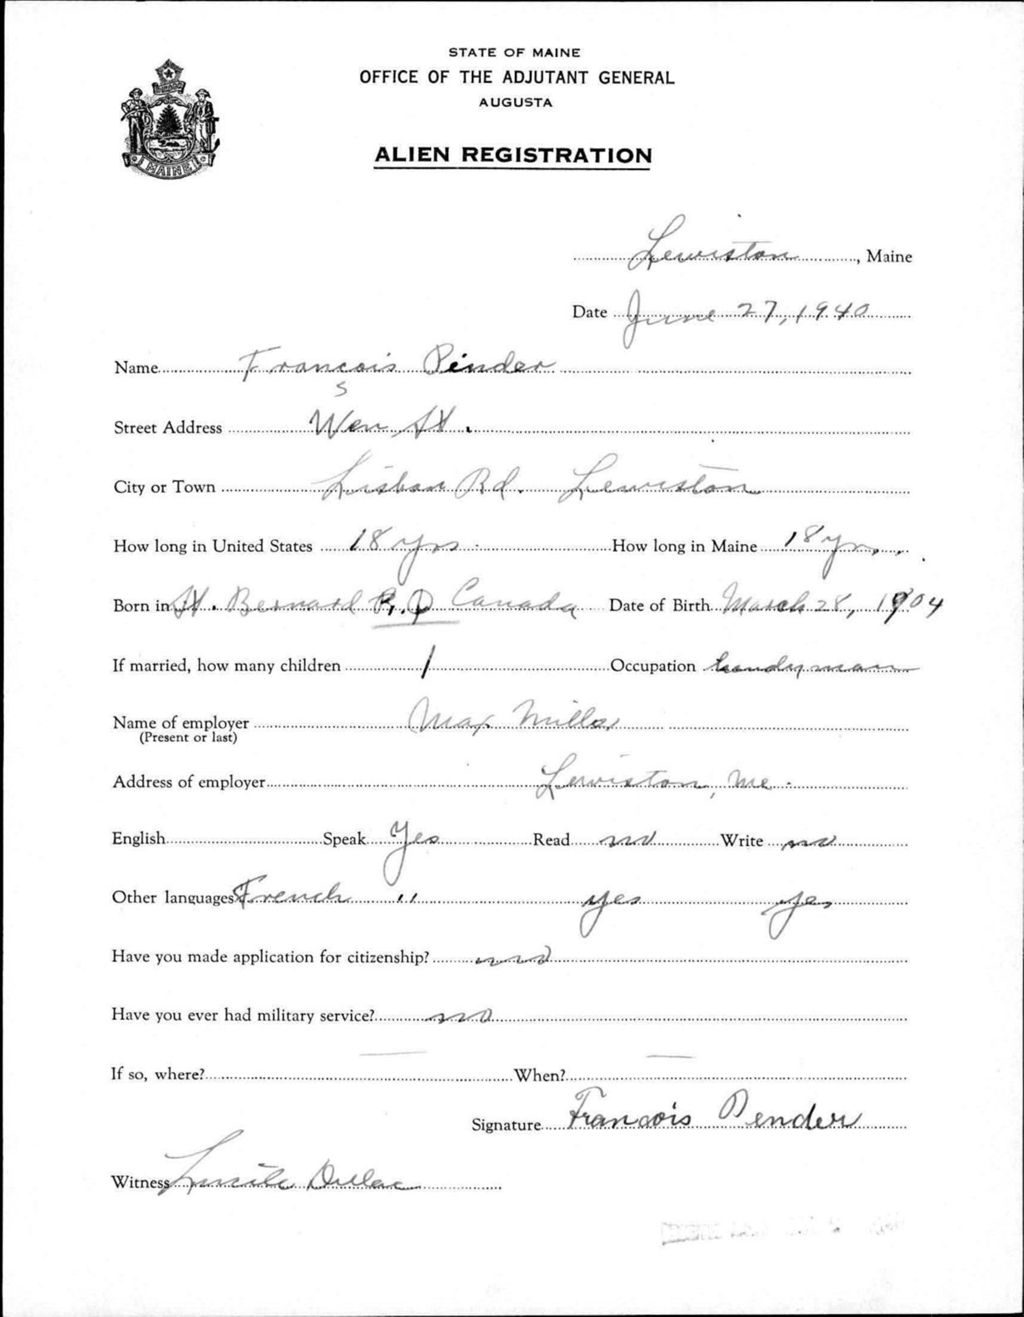 STATE OF MAINE
OFFICE OF THE ADJUTANT GENERAL
AUGUSTA
ALIEN REGISTRATION
MAINE
Lewiston, Maine
Date June 27, 1940
Name Francois Pinder
s
Street Address Wen St.
City or Town Lisbon Rd. Lewiston
How long in United States 18 yrs. How long in Maine 18 yrs.
Born in St. Bernard P.Q Canada Date of Birth March 28, 1904
If married, how many children 1 Occupation handyman
Name of employer Max Mills
(Present or last)
Address of employer Lewiston, Me.
English Speak Yes Read no Write no
Other languages French " yes yes
Have you made application for citizenship? no
Have you ever had military service? no
If so, where? — When? —
Signature Francois Pender
Witness Lucile Dulac